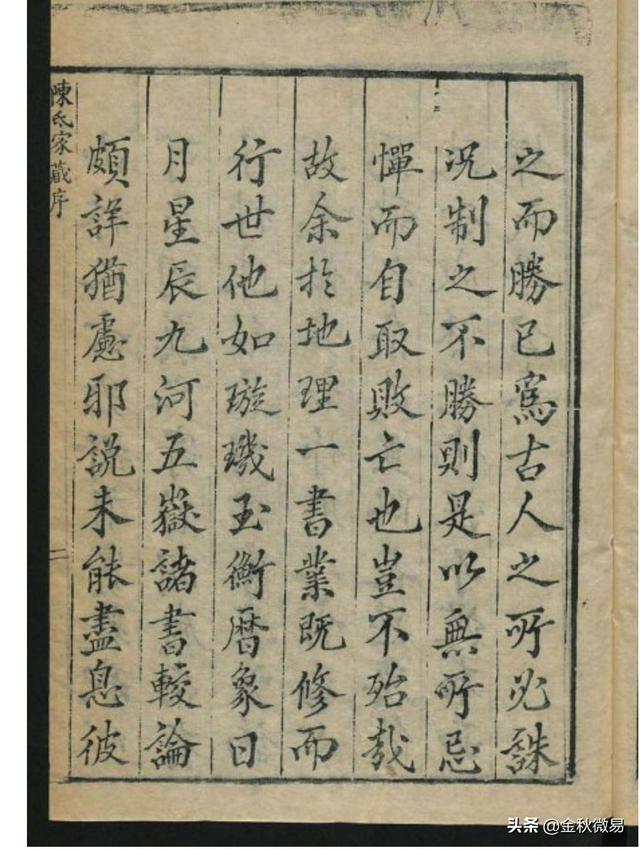 之而勝已爲古人之所必誅
况制之不勝則是以無所忌
憚而自取敗亡也豈不殆哉
故余扵地理一書業既修而
行世他如璇璣玉衡曆象日
月星辰九河五嶽諸書較論
頗詳猶慮邪説未能盡息彼
陳氏家藏序
二
头条 @金秋微易